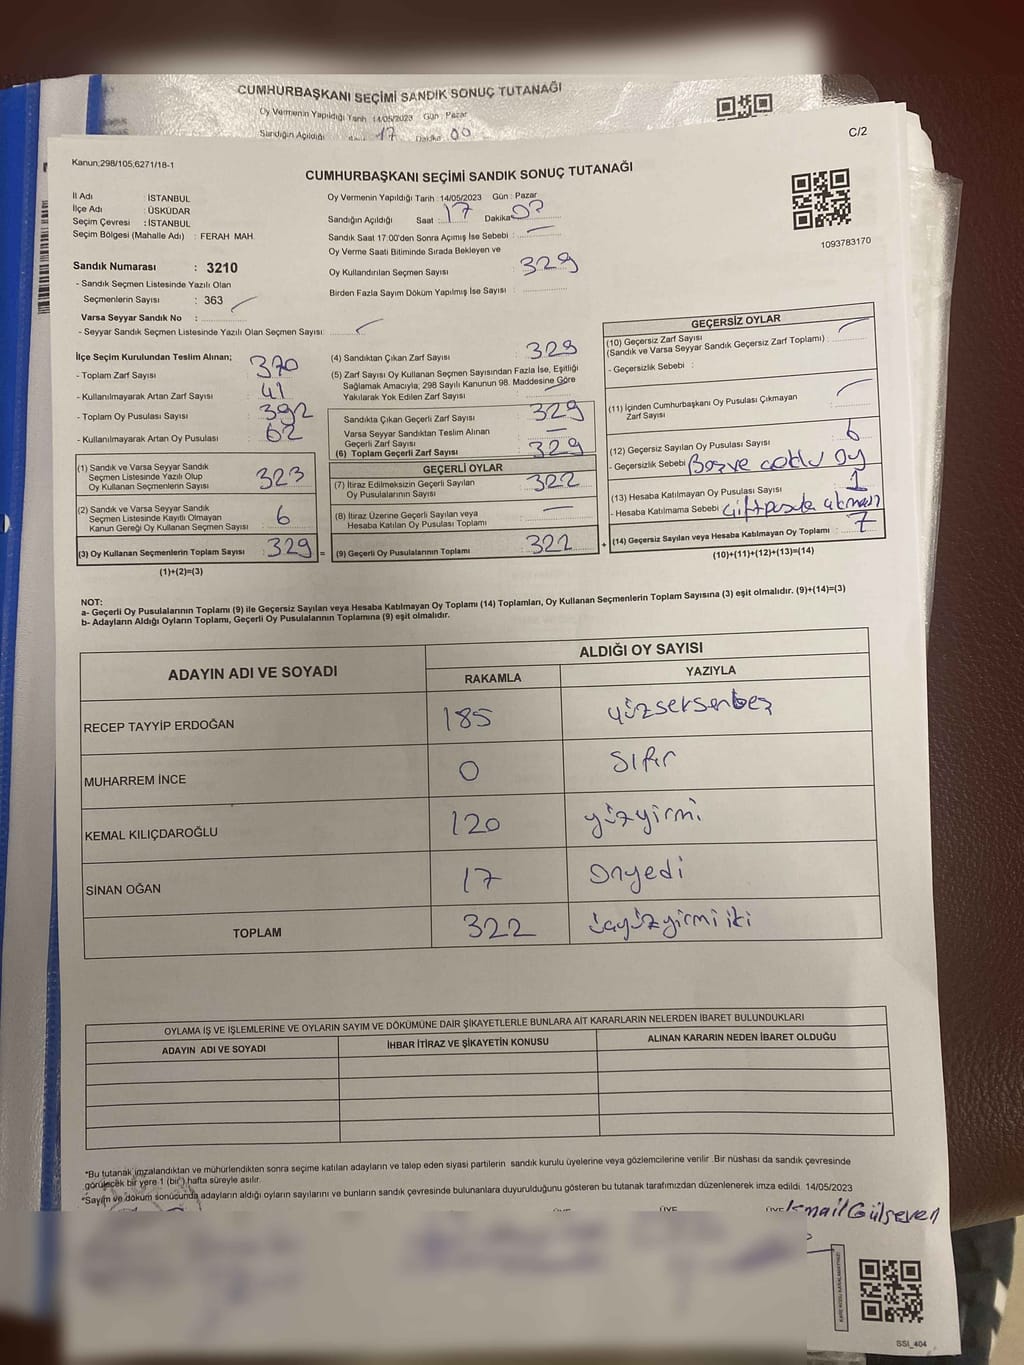 CUMHURBAŞKANI SEÇİMİ SANDIK SONUÇ TUTANAĞI
Oy Vermenin Yapıldığı Tarih 14/05/2023 Gün : Pazar
Sandığın Açıldığı 17 Dakika 00
C/2
Kanun;298/105,6271/18-1
CUMHURBAŞKANI SEÇİMİ SANDIK SONUÇ TUTANAĞI
İl Adı : İSTANBUL
İlçe Adı : ÜSKÜDAR
Seçim Çevresi : İSTANBUL
Seçim Bölgesi (Mahalle Adı) : FERAH MAH.
Oy Vermenin Yapıldığı Tarih : 14/05/2023 Gün : Pazar
Sandığın Açıldığı Saat : 17 Dakika
Sandık Saat 17:00'den Sonra Açımış İse Sebebi :
Oy Verme Saati Bitiminde Sırada Bekleyen ve
Oy Kullandırılan Seçmen Sayısı : 329
Birden Fazla Sayım Döküm Yapılmış İse Sayısı :
1093783170
Sandık Numarası : 3210
- Sandık Seçmen Listesinde Yazılı Olan
Seçmenlerin Sayısı : 363
Varsa Seyyar Sandık No :
- Seyyar Sandık Seçmen Listesinde Yazılı Olan Seçmen Sayısı:
İlçe Seçim Kurulundan Teslim Alınan;
- Toplam Zarf Sayısı : 370
- Kullanılmayarak Artan Zarf Sayısı : 41
- Toplam Oy Pusulası Sayısı : 392
- Kullanılmayarak Artan Oy Pusulası : 62
(1) Sandık ve Varsa Seyyar Sandık
Seçmen Listesinde Yazılı Olup
Oy Kullanan Seçmenlerin Sayısı : 323
(2) Sandık ve Varsa Seyyar Sandık
Seçmen Listesinde Kayıtlı Olmayan
Kanun Gereği Oy Kullanan Seçmen Sayısı : 6
(3) Oy Kullanan Seçmenlerin Toplam Sayısı : 329 =
(1)+(2)=(3)
(4) Sandıktan Çıkan Zarf Sayısı : 329
(5) Zarf Sayısı Oy Kullanan Seçmen Sayısından Fazla İse, Eşitliği
Sağlamak Amacıyla, 298 Sayılı Kanunun 98. Maddesine Göre
Yakılarak Yok Edilen Zarf Sayısı :
Sandıkta Çıkan Geçerli Zarf Sayısı : 329
Varsa Seyyar Sandıktan Teslim Alınan
Geçerli Zarf Sayısı :
(6) Toplam Geçerli Zarf Sayısı : 329
GEÇERLİ OYLAR
(7) İtiraz Edilmeksizin Geçerli Sayılan
Oy Pusulalarının Sayısı : 322
(8) İtiraz Üzerine Geçerli Sayılan veya
Hesaba Katılan Oy Pusulası Toplamı :
(9) Geçerli Oy Pusulalarının Toplamı : 322 +
GEÇERSİZ OYLAR
(10) Geçersiz Zarf Sayısı
(Sandık ve Varsa Seyyar Sandık Geçersiz Zarf Toplamı) :
- Geçersizlik Sebebi :
(11) İçinden Cumhurbaşkanı Oy Pusulası Çıkmayan
Zarf Sayısı :
(12) Geçersiz Sayılan Oy Pusulası Sayısı : 6
- Geçersizlik Sebebi : Boş ve çoklu oy
(13) Hesaba Katılmayan Oy Pusulası Sayısı : 1
- Hesaba Katılmama Sebebi : Çift pusula çıkması
(14) Geçersiz Sayılan veya Hesaba Katılmayan Oy Toplamı : 7
(10)+(11)+(12)+(13)=(14)
NOT:
a- Geçerli Oy Pusulalarının Toplamı (9) ile Geçersiz Sayılan veya Hesaba Katılmayan Oy Toplamı (14) Toplamları, Oy Kullanan Seçmenlerin Toplam Sayısına (3) eşit olmalıdır. (9)+(14)=(3)
b- Adayların Aldığı Oyların Toplamı, Geçerli Oy Pusulalarının Toplamına (9) eşit olmalıdır.
ADAYIN ADI VE SOYADI
ALDIĞI OY SAYISI
RAKAMLA YAZIYLA
RECEP TAYYİP ERDOĞAN 185 yüzseksenbeş
MUHARREM İNCE 0 sıfır
KEMAL KILIÇDAROĞLU 120 yüzyirmi
SİNAN OĞAN 17 onyedi
TOPLAM 322 üçyüzyirmi iki
OYLAMA İŞ VE İŞLEMLERİNE VE OYLARIN SAYIM VE DÖKÜMÜNE DAİR ŞİKAYETLERLE BUNLARA AİT KARARLARIN NELERDEN İBARET BULUNDUKLARI
ADAYIN ADI VE SOYADI İHBAR İTİRAZ VE ŞİKAYETİN KONUSU ALINAN KARARIN NEDEN İBARET OLDUĞU
*Bu tutanak imzalandıktan ve mühürlendikten sonra seçime katılan adayların ve talep eden siyasi partilerin sandık kurulu üyelerine veya gözlemcilerine verilir. Bir nüshası da sandık çevresinde
görülecek bir yere 1 (bir) hafta süreyle asılır.
*Sayım ve döküm sonucunda adayların aldığı oyların sayılarını ve bunların sandık çevresinde bulunanlara duyurulduğunu gösteren bu tutanak tarafımızdan düzenlenerek imza edildi. 14/05/2023
ÜYE ÜYE ÜYE İsmail Gülseven
SSI_404